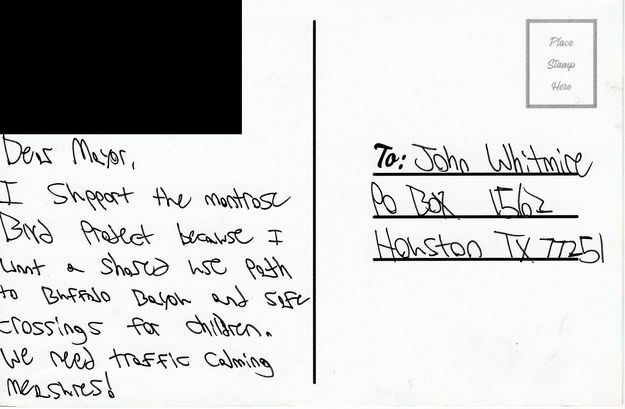 Place
Stamp
Here
Dear Mayor,
I support the montrose
Blvd Project because I
want a shared use path
to Buffalo Bayou and safe
crossings for children.
We need traffic calming
measures!
To: John Whitmire
PO Box 1562
Houston TX 77251